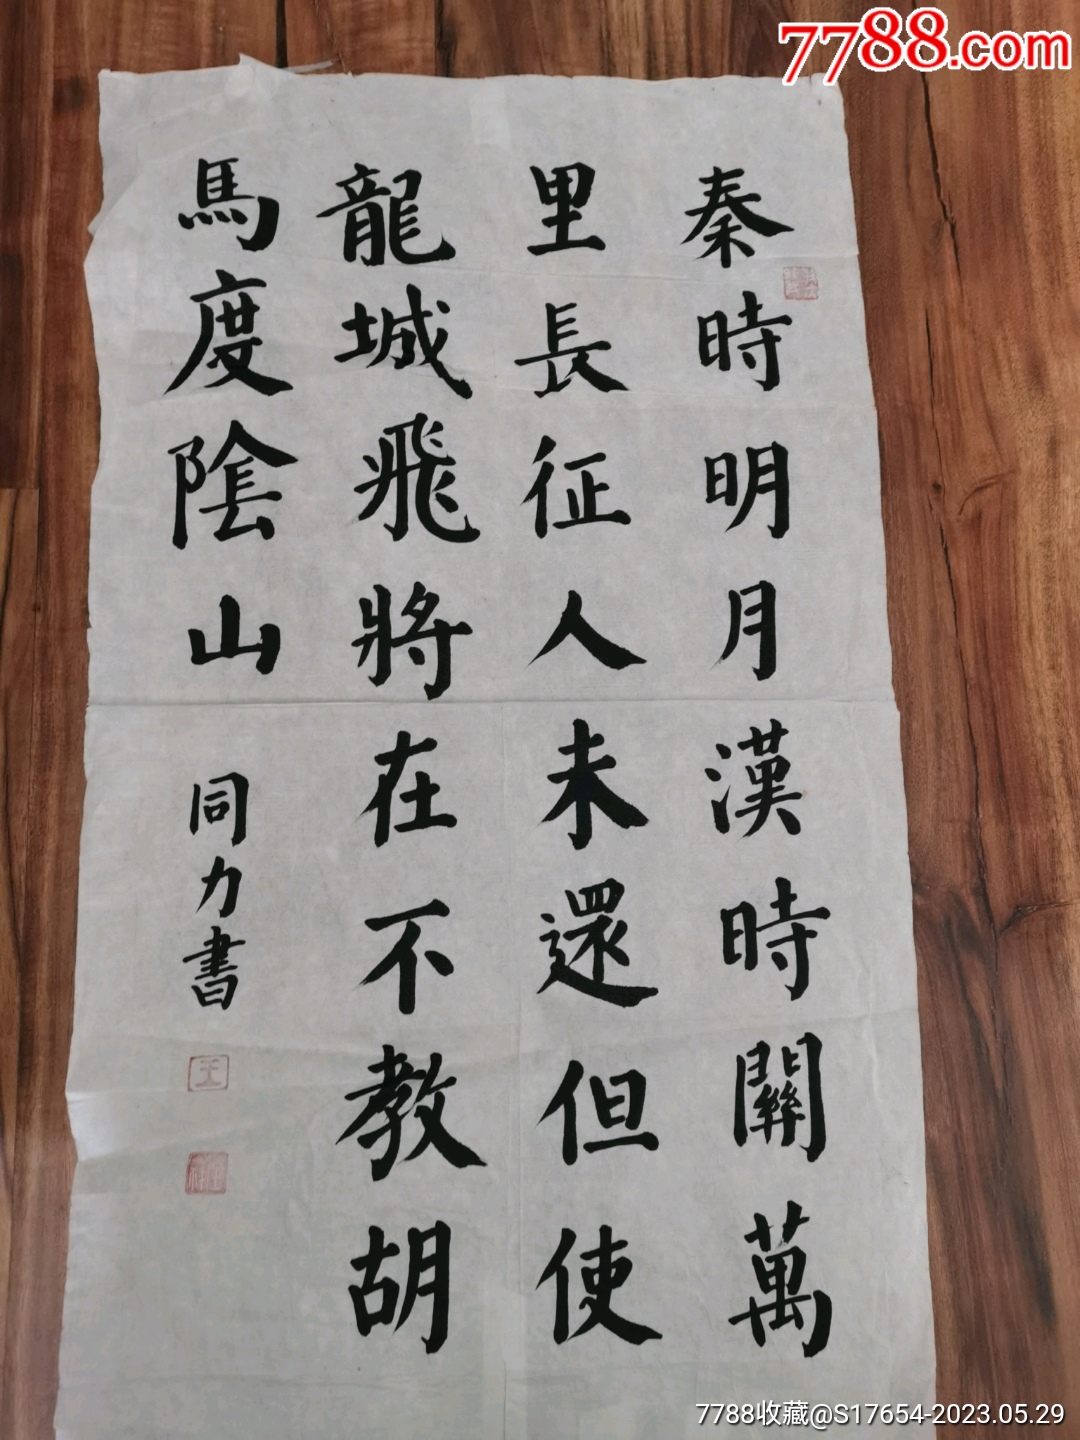 7788.com
秦時明月漢時關萬
里長征人未還但使
龍城飛將在不教胡
馬度陰山
同力書
王
7788收藏@S17654-2023.05.29